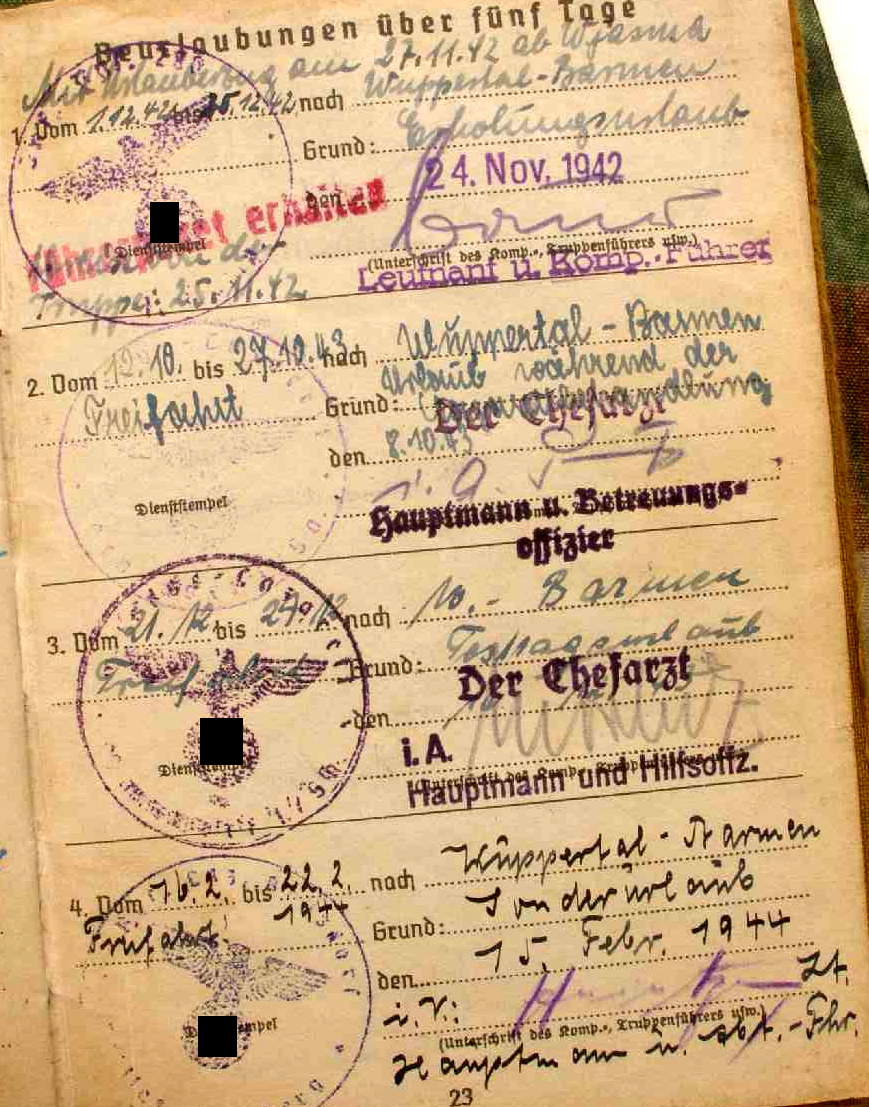 Beurlaubungen über fünf Tage
Mit Urlauberzug am 27.11.42 ab Wjasma
1. Vom 1.12.42 bis 25.12.42 nach Wuppertal-Barmen
Grund: Erholungsurlaub
den 24. Nov. 1942
Führerpaket erhalten
Dienststempel
(Unterschrift des Komp., Truppenführers usw.)
Leutnant u. Komp.-Führer
Truppe: 25.11.42
2. Vom 12.10. bis 27.10.43 nach Wuppertal-Barmen
Urlaub während der
Freifahrt
Grund:
Der Chefarzt
den 8.10.43
i.A.
Dienststempel
Hauptmann u. Betreuungs-
offizier
3. Vom 21.12 bis 27.12 nach W.-Barmen
Freifahrt
Grund: Festtagsurlaub
Der Chefarzt
den
i.A.
(Unterschrift des Komp., Truppenführers usw.)
Hauptmann und Hilfsoffz.
4. Vom 16.2. bis 22.2. 1944 nach Wuppertal-Barmen
Freifahrt.
Grund: Sonderurlaub
den 15. Febr. 1944
i.V.: Lt.
(Unterschrift des Komp., Truppenführers usw.)
Hauptmann u. Abt.-Fhr.
23